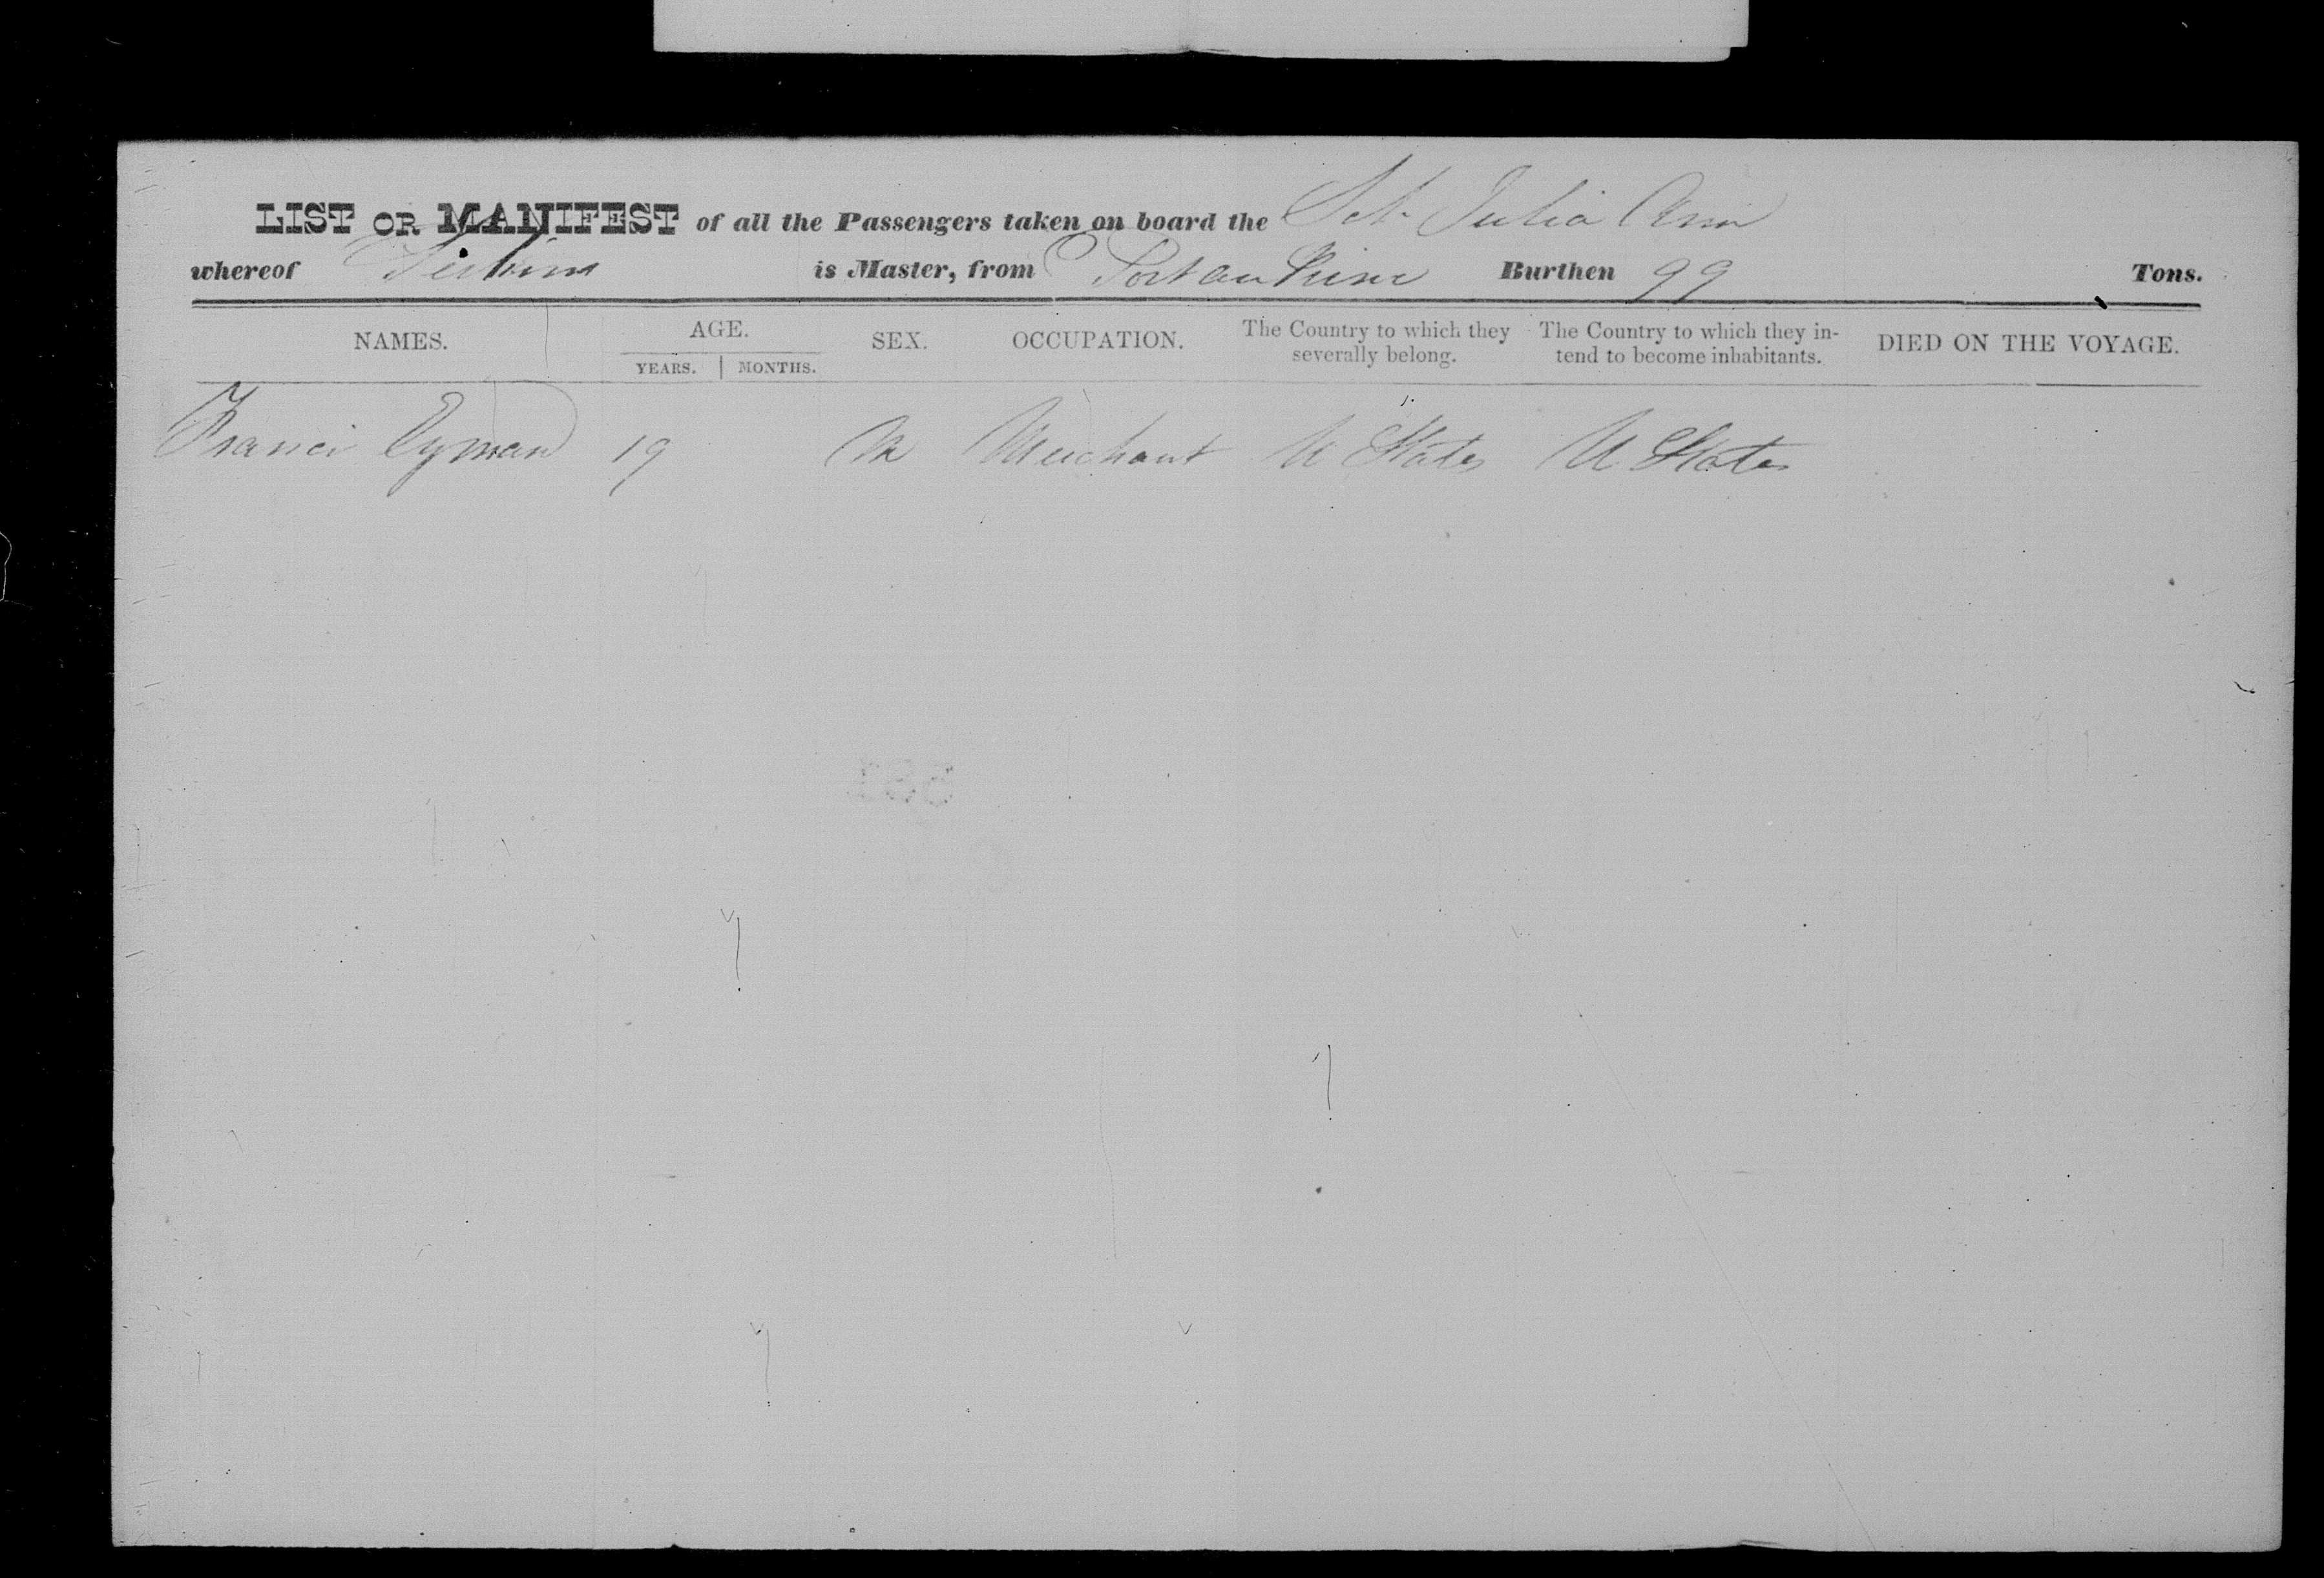 LIST OR MANIFEST of all the Passengers taken on board the Sch Julia Ann
whereof is Master, from Port au Prince Burthen 99 Tons.
NAMES. AGE. SEX. OCCUPATION. The Country to which they severally belong. The Country to which they intend to become inhabitants. DIED ON THE VOYAGE.
YEARS. MONTHS.
Francis 19 M Merchant U States U States